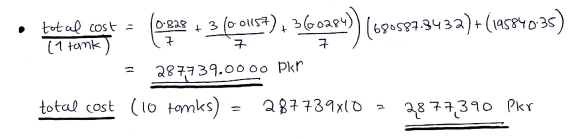 • total cost (1 tank) = (0.828/7 + 3(0.01157)/7 + 3(0.0284)/7) (680587.3432) + (195840.35)
= 287,739.0000 Pkr
total cost (10 tanks) = 287739x10 = 2,877,390 Pkr